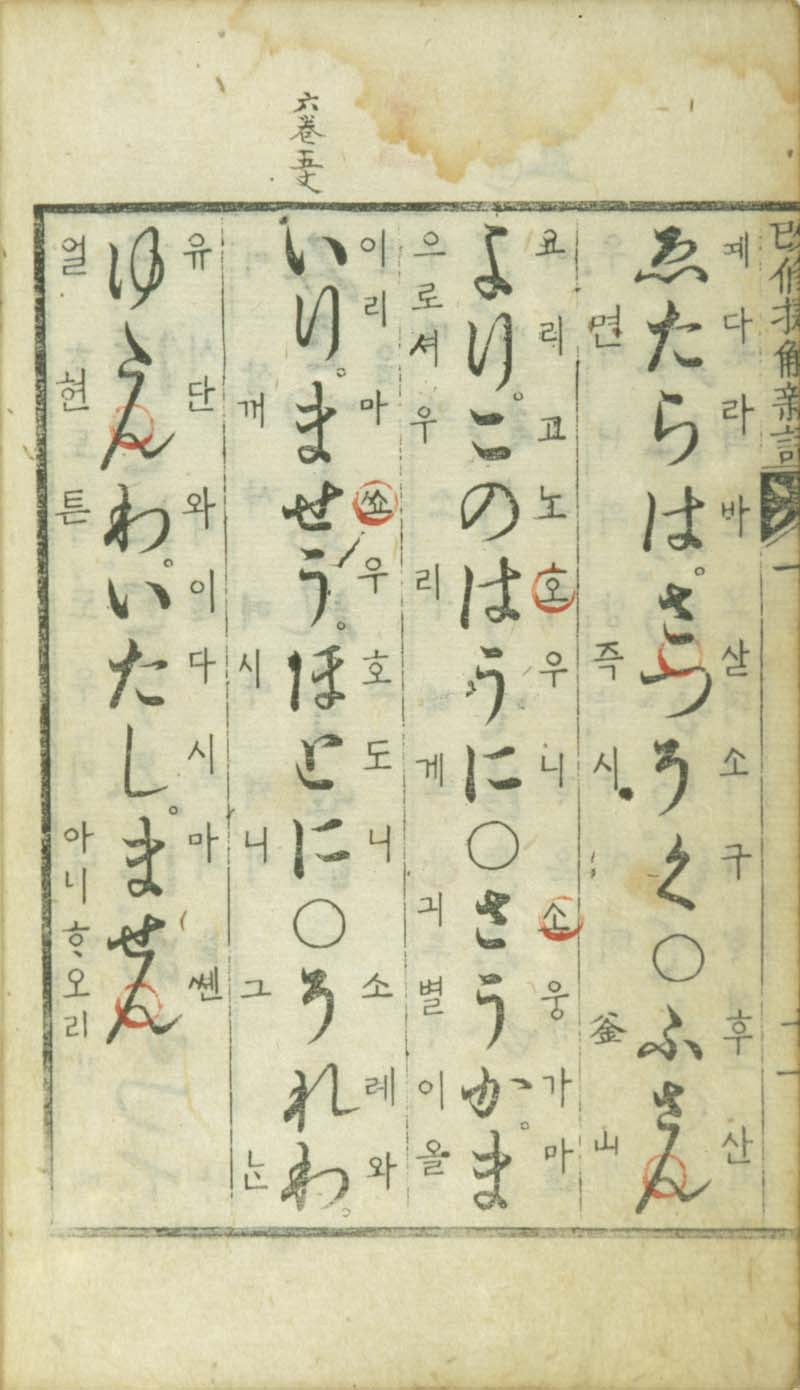 六卷五丈
改修捷解新語 一
예다라바삳소구후산
ゑたらは。さつそく○ふさん
면즉시釜山
요리고노호우니소웅가마
より。このはうに○さうか。ま
으로셔우리게긔별이올
이리마쑈우호도니소레와
いり。ませう。ほとに○それわ。
께시니그ᄂᆞᆫ
유단와이다시마쎈
ゆたんわ。いたし。ません
얼현튼아니ᄒᆞ오리